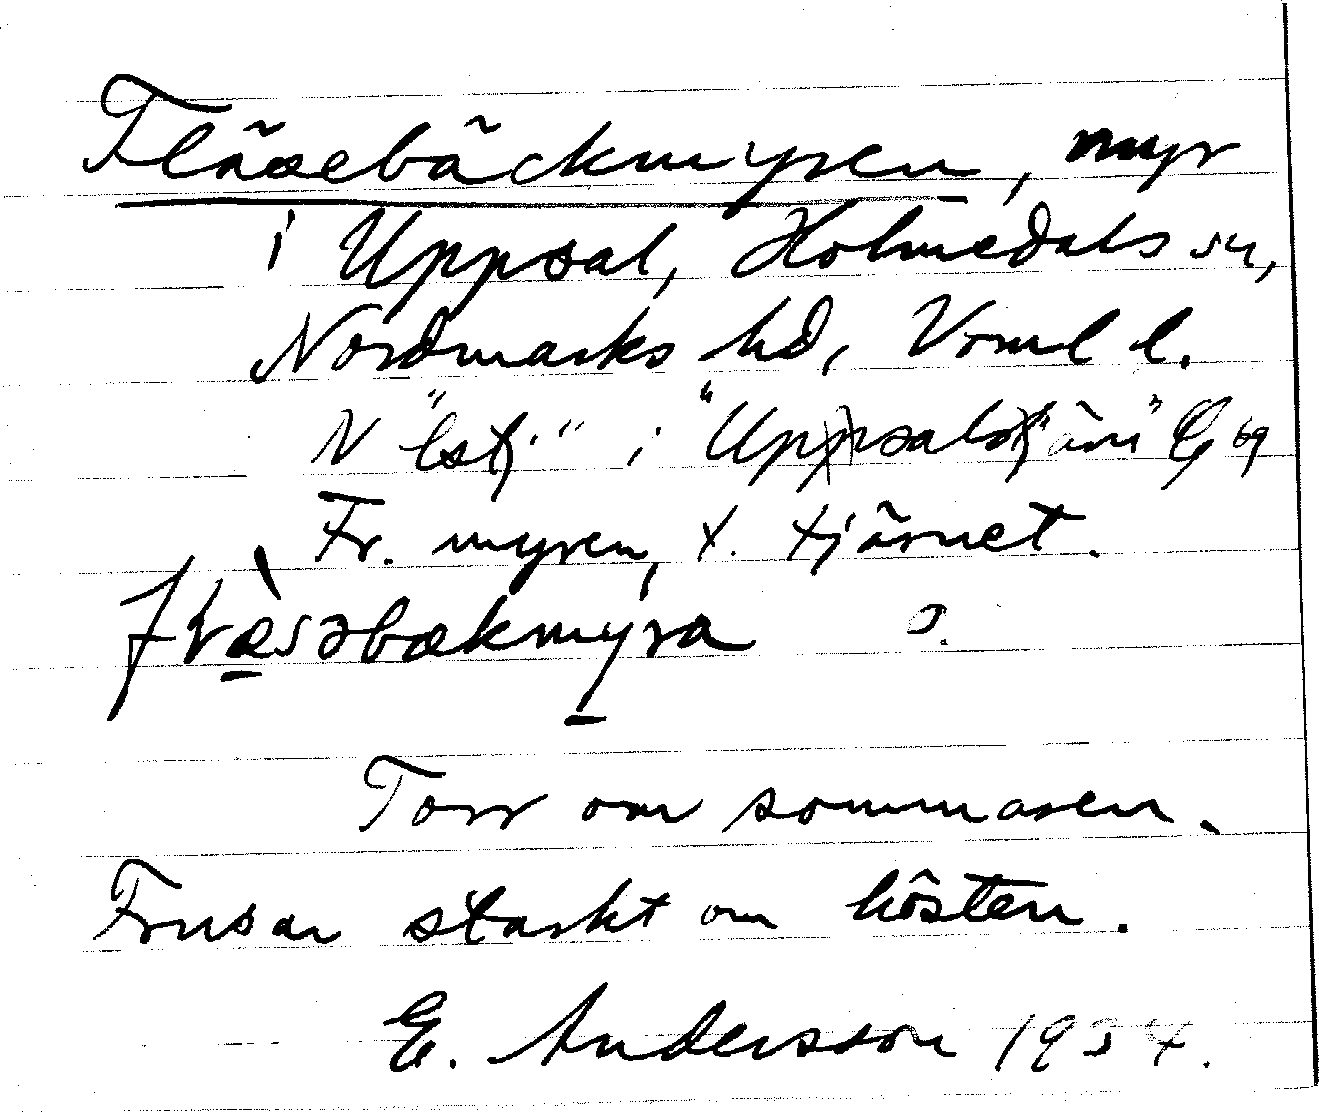 Fläsebäckmyren, myr
i Uppsal, Holmedals sn,
Nordmarks hd, Vrml l.
N "lstj." i "Uppsalstjärn" Eg 69
Fr. myren, t. tjärnet.
o.
Torr om sommaren.
Frusar starkt om hösten.
E. Andersson 1934.